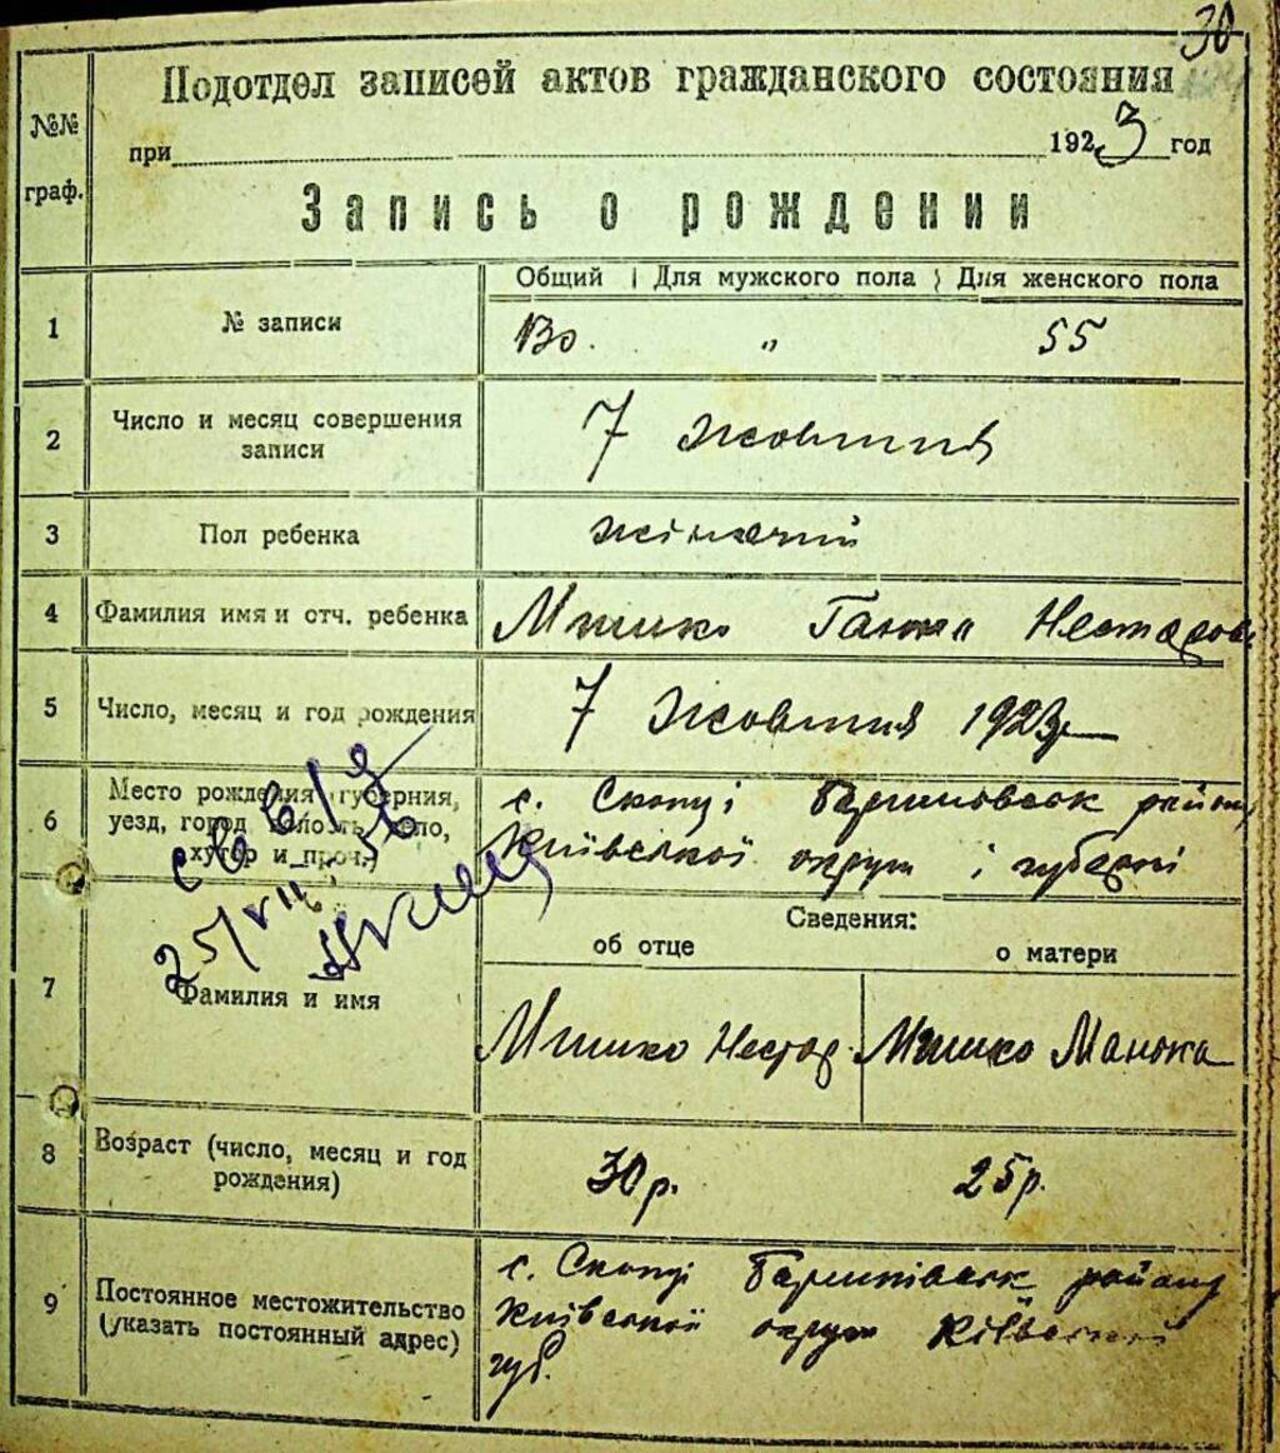 30
Подотдел записей актов гражданского состояния
№№
граф.
при 1923 год
Запись о рождении
Общий Для мужского пола Для женского пола
1 № записи 130. " 55
2 Число и месяц совершения
записи
7 жовтня
3 Пол ребенка жіночий
4 Фамилия имя и отч. ребенка Мишко Ганна Несторов
5 Число, месяц и год рождения 7 жовтня 1923р
6 Место рождения (губерния,
уезд, город волость, село,
хутор и проч.)
с. Скопці Баришовськ району
Київської округи і губерні
св в/д
25/VII 56
Сведения:
об отце о матери
7 Фамилия и имя
Мишко Нестор. Мишко Манька
8 Возраст (число, месяц и год
рождения)
30 р. 25 р.
9 Постоянное местожительство
(указать постоянный адрес)
с. Скопці Баришівськ району
Київської округи Київської
губ.